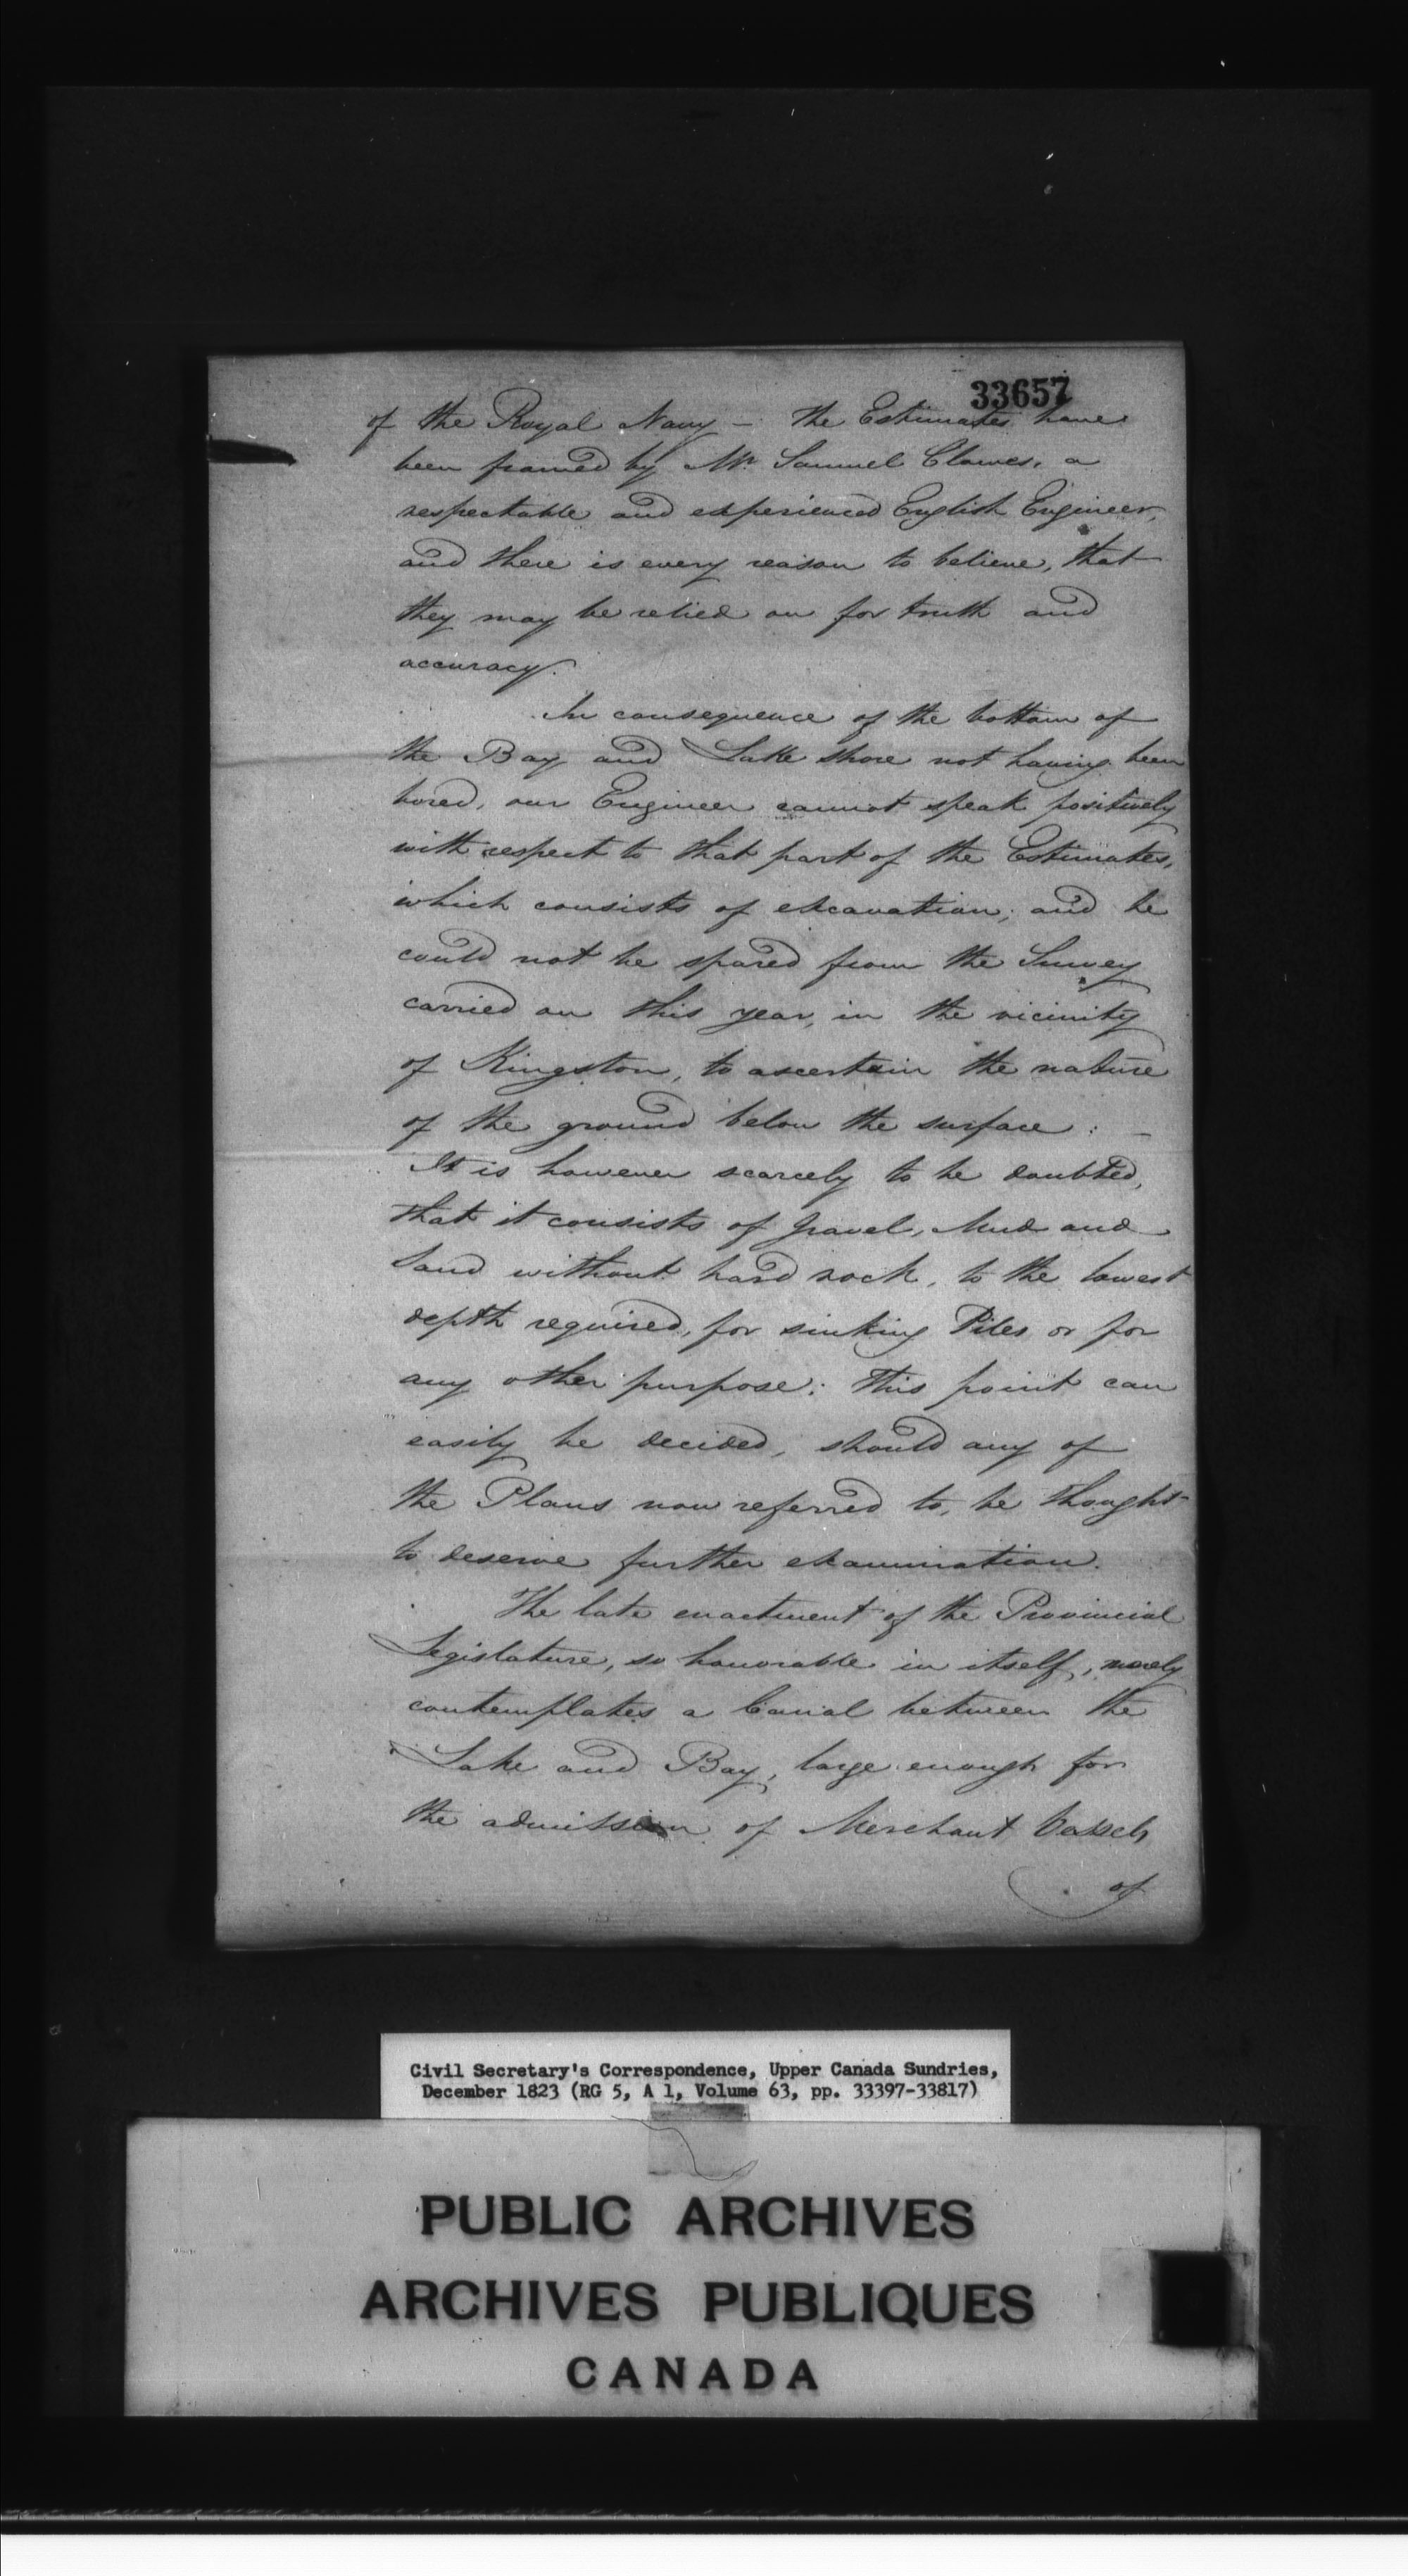 33657
of the Royal Navy — the Estimates have
been framed by Mr. Samuel Clowes, a
respectable and experienced English Engineer,
and there is every reason to believe, that
they may be relied on for truth and
accuracy.
In consequence of the bottom of
the Bay and Lake shore not having been
bored, our Engineer cannot speak positively
with respect to that part of the Estimates,
which consists of excavation; and he
could not be spared from the Survey
carried on this year, in the vicinity
of Kingston, to ascertain the nature
of the ground below the surface: —
It is however scarcely to be doubted,
that it consists of gravel, Mud and
Sand without hard rock, to the lowest
depth required, for sinking Piles or for
any other purpose: This point can
easily be decided, should any of
the Plans now referred to, be thought
to deserve further examination.
The late enactment of the Provincial
Legislature, so honorable in itself, merely
contemplates a Canal between the
Lake and Bay, large enough for
the admission of Merchant Vessels
of
Civil Secretary's Correspondence, Upper Canada Sundries,
December 1823 (RG 5, A 1, Volume 63, pp. 33397-33817)
PUBLIC ARCHIVES
ARCHIVES PUBLIQUES
CANADA